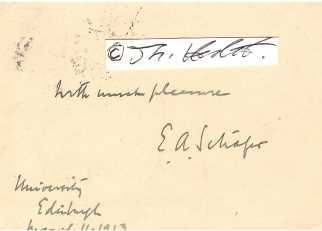 © Th. Vedtt.
With much pleasure
E. A. Schäfer
University
Edinburgh
March 11. 1913